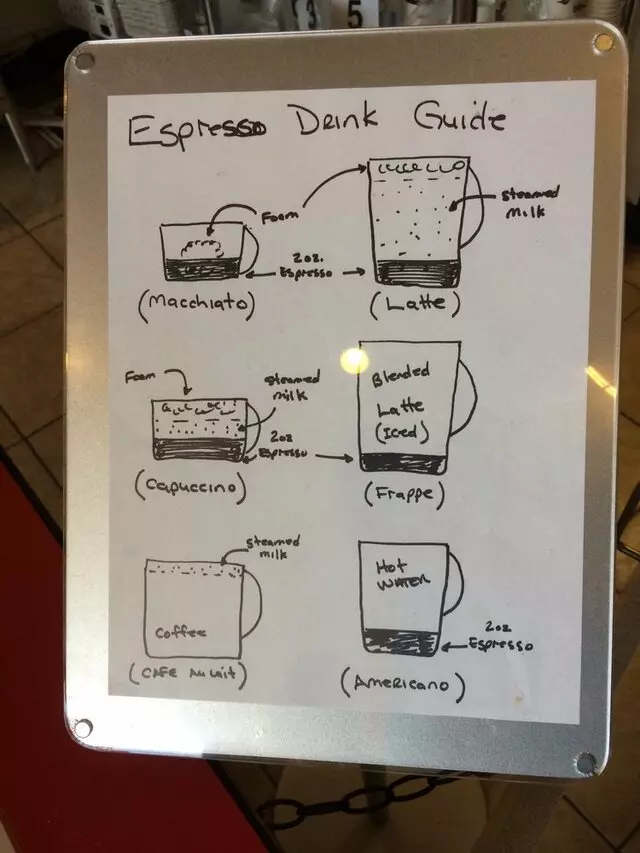 Espresso Drink Guide
Foam
steamed
milk
2oz.
Espresso
(Macchiato)
(Latte)
Foam
steamed
milk
2oz
Espresso
Blended
Latte
(Iced)
(Capuccino)
(Frappe)
steamed
milk
Coffee
Hot
WATER
2oz
Espresso
(CAFE Au Lait)
(Americano)
5